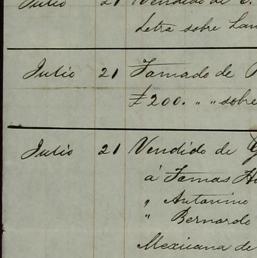 Julio 21 Vendido de
Letra sobre
Julio 21 Tomado de
£200. " " sobre
Julio 21 Vendido de
á Temas
" Antonino
" Bernardo
Mexicana de